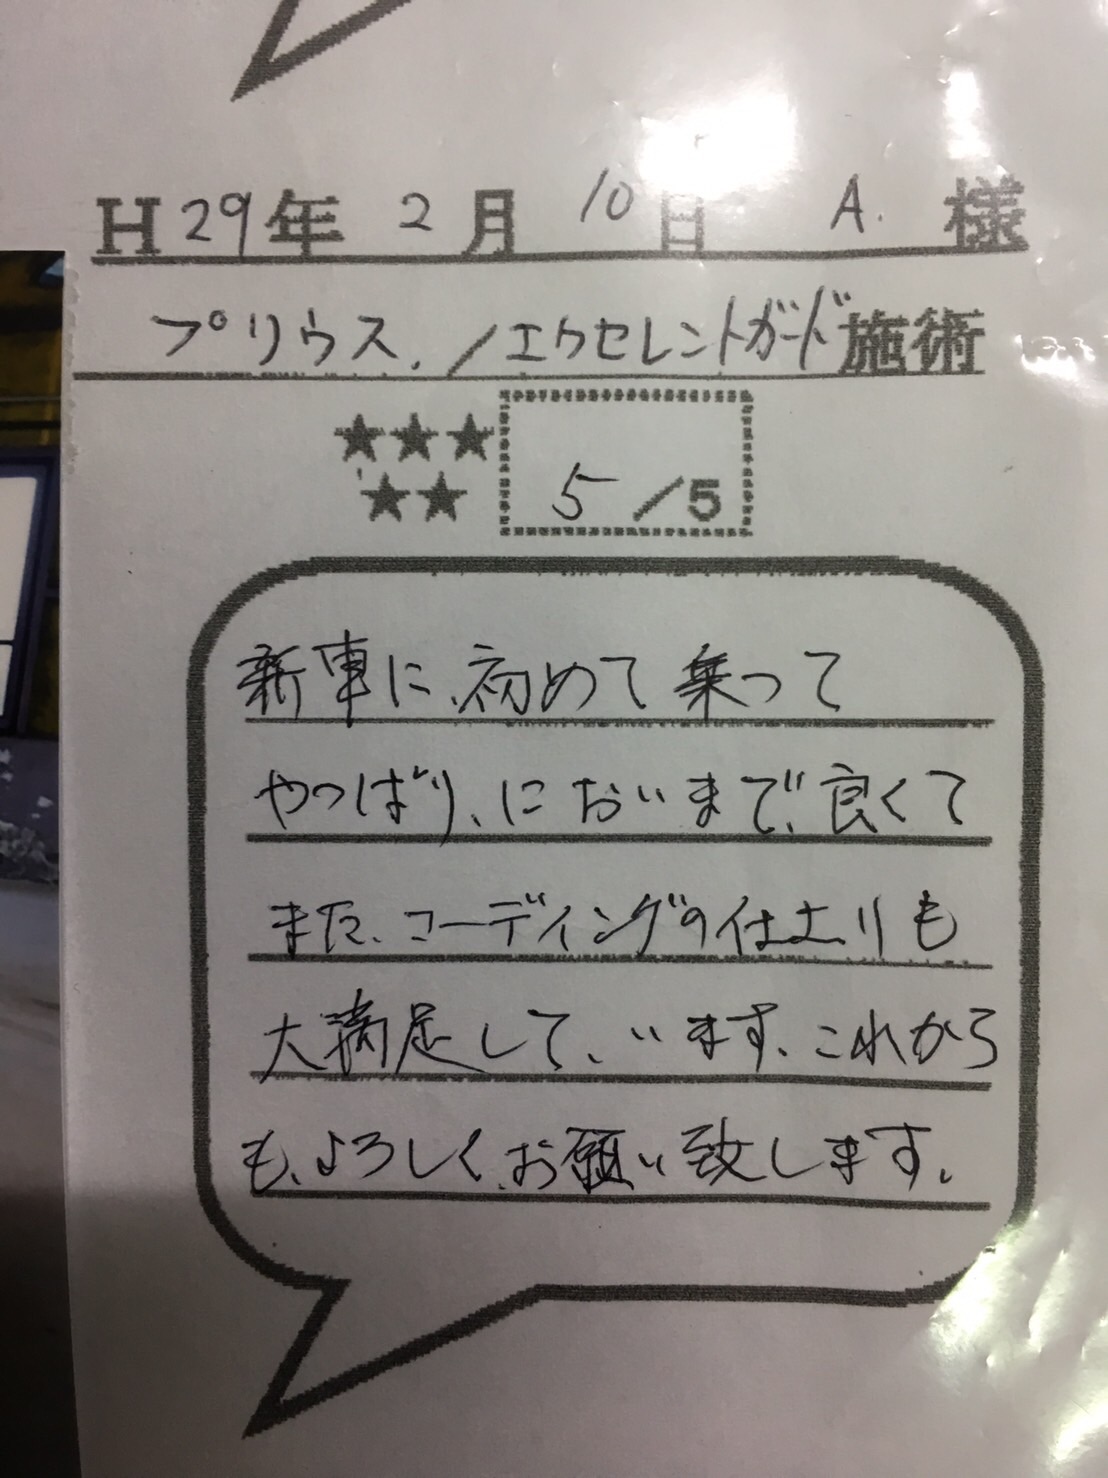 H29年 2月 10日 A. 様
プリウス. /エクセレントガード施術
★★★
★★
5/5
新車に、初めて乗って
やっぱり、においまで、良くて
また、コーディングの仕上りも
大満足して、います、これから
も、よろしく、お願い致します。